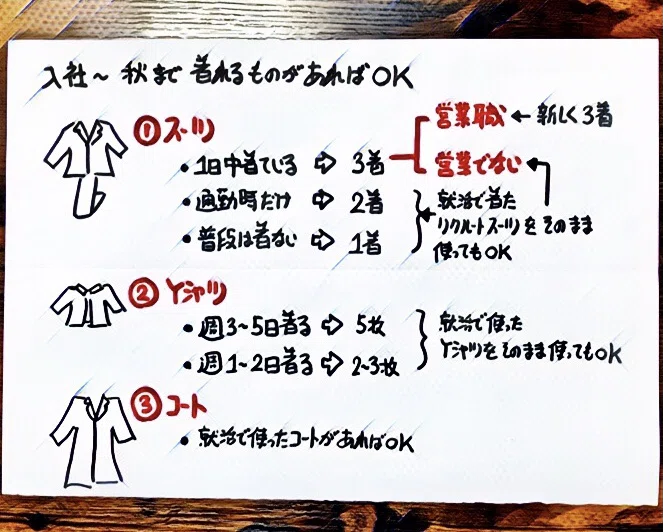 入社〜 秋まで 着れるものがあればOK
① スーツ
・1日中着ている ⇨ 3着
営業職 ← 新しく3着
営業でない ←
・通勤時だけ ⇨ 2着
・普段は着ない ⇨ 1着
就活で着た
リクルートスーツを そのまま
使ってもOK
② Yシャツ
・週3~5日着る ⇨ 5枚
・週1~2日着る ⇨ 2~3枚
就活で使った
Yシャツをそのまま使ってもOK
③ コート
・就活で使ったコートがあればOK